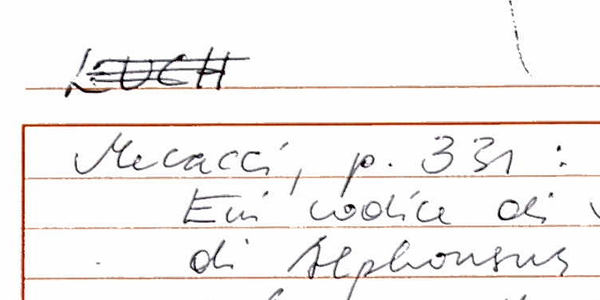 LEUCH
Mecacci, p. 331 :
Ein codice di
di Alphonsus